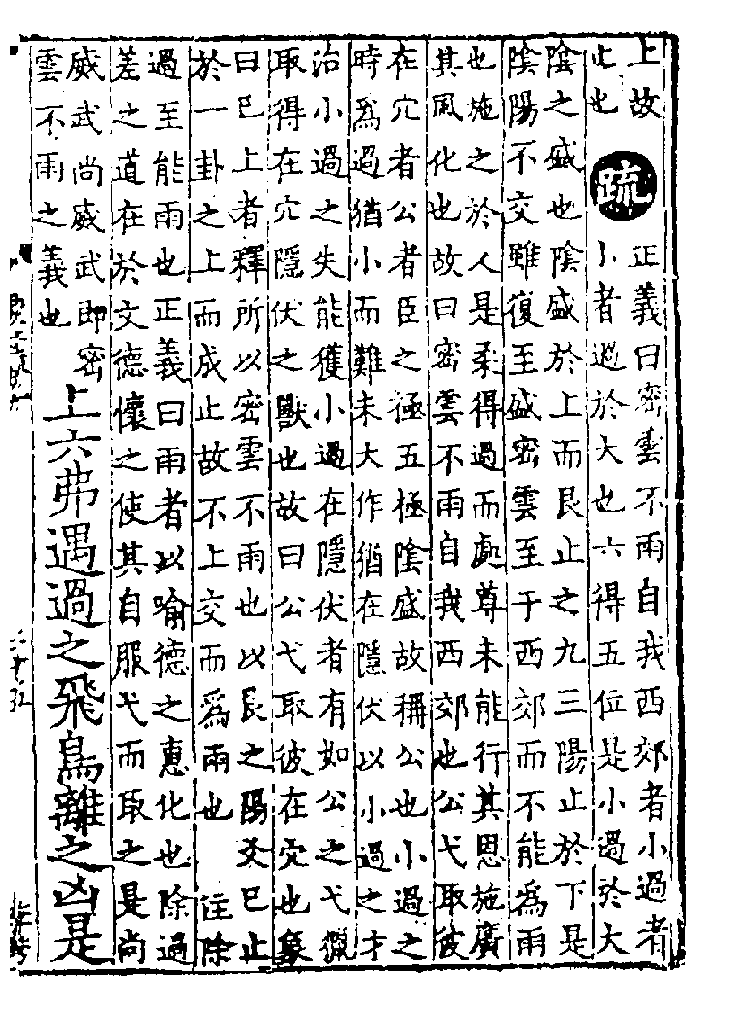 上故
止也
疏
正義曰密雲不雨自我西郊者小過者
小者過於大也六得五位是小過於大
陰之盛也陰盛於上而艮止之九三陽止於下是
陰陽不交雖復至盛密雲至于西郊而不能爲雨
也施之於人是柔得過而處尊未能行其恩施廣
其風化也故曰密雲不雨自我西郊也公弋取彼
在穴者公者臣之極五極陰盛故稱公也小過之
時爲過猶小而難未大作猶在隱伏以小過之才
治小過之失能獲小過在隱伏者有如公之弋獵
取得在穴隱伏之獸也故曰公弋取彼在穴也象
曰已上者釋所以密雲不雨也以艮之陽爻已止
於一卦之上而成止故不上交而爲雨也 注除
過至能雨也正義曰雨者以喻德之惠化也除過
差之道在於文德懷之使其自服弋而取之是尚
威武尚威武即密
雲不雨之義也
上六弗遇過之飛鳥離之凶是